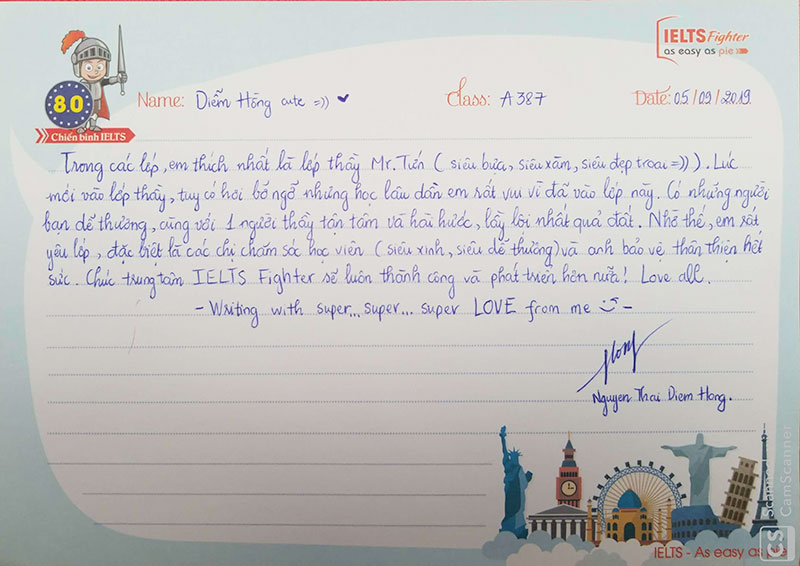 IELTS Fighter
as easy as pie
8.0
Chiến binh IELTS
Name: Diễm Hồng cute =)) ❤
Class: A387
Date: 05/09/2019
Trong các lớp, em thích nhất là lớp thầy Mr. Tiến ( siêu bựa, siêu xàm, siêu đẹp troai =)) ). Lúc
mới vào lớp thầy, tuy có hơi bỡ ngỡ nhưng học lâu dần em rất vui vì đã vào lớp này. Có những người
bạn dễ thương, cùng với 1 người thầy tận tâm và hài hước, lầy lội nhất quả đất. Nhờ thế, em rất
yêu lớp, đặc biệt là các chị chăm sóc học viên ( siêu xinh, siêu dễ thương) và anh bảo vệ thân thiện hết
sức. Chúc trung tâm IELTS Fighter sẽ luôn thành công và phát triển hơn nữa! Love all.
- Writing with super... super... super LOVE from me -
Nguyen Thai Diem Hong.
IELTS - As easy as pie
CS
Scanned with
CamScanner